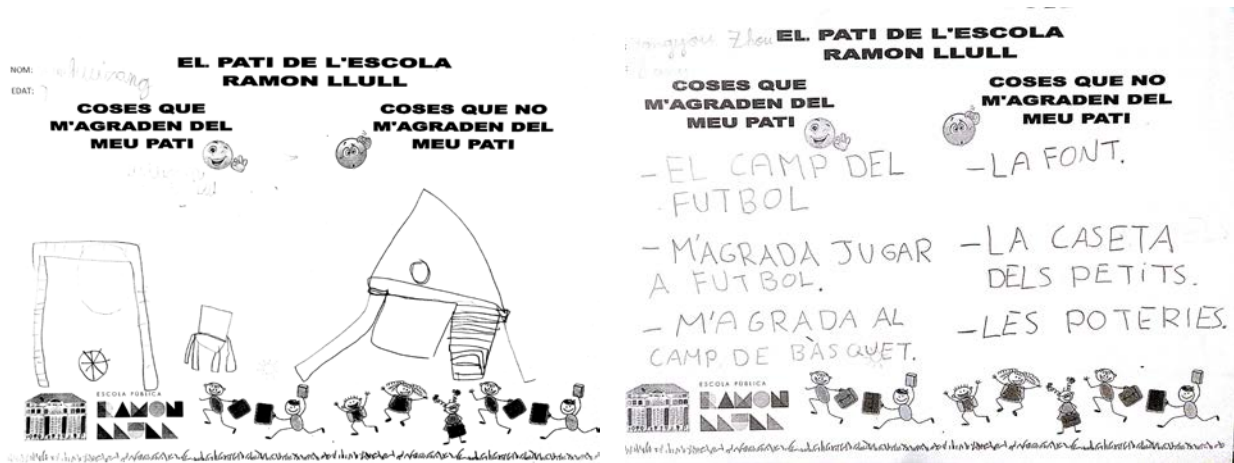 EL PATI DE L'ESCOLA
RAMON LLULL
NOM:
EDAT:
COSES QUE
M'AGRADEN DEL
MEU PATI
COSES QUE NO
M'AGRADEN DEL
MEU PATI
ESCOLA PÚBLICA
RAMON
LLULL
Zhou
EL PATI DE L'ESCOLA
RAMON LLULL
COSES QUE
M'AGRADEN DEL
MEU PATI
- EL CAMP DEL
FUTBOL
- M'AGRADA JUGAR
A FUTBOL.
- M'AGRADA AL
CAMP DE BÀSQUET.
COSES QUE NO
M'AGRADEN DEL
MEU PATI
- LA FONT.
- LA CASETA
DELS PETiTS.
- LES POTERIES.
ESCOLA PÚBLICA
RAMON
LLULL